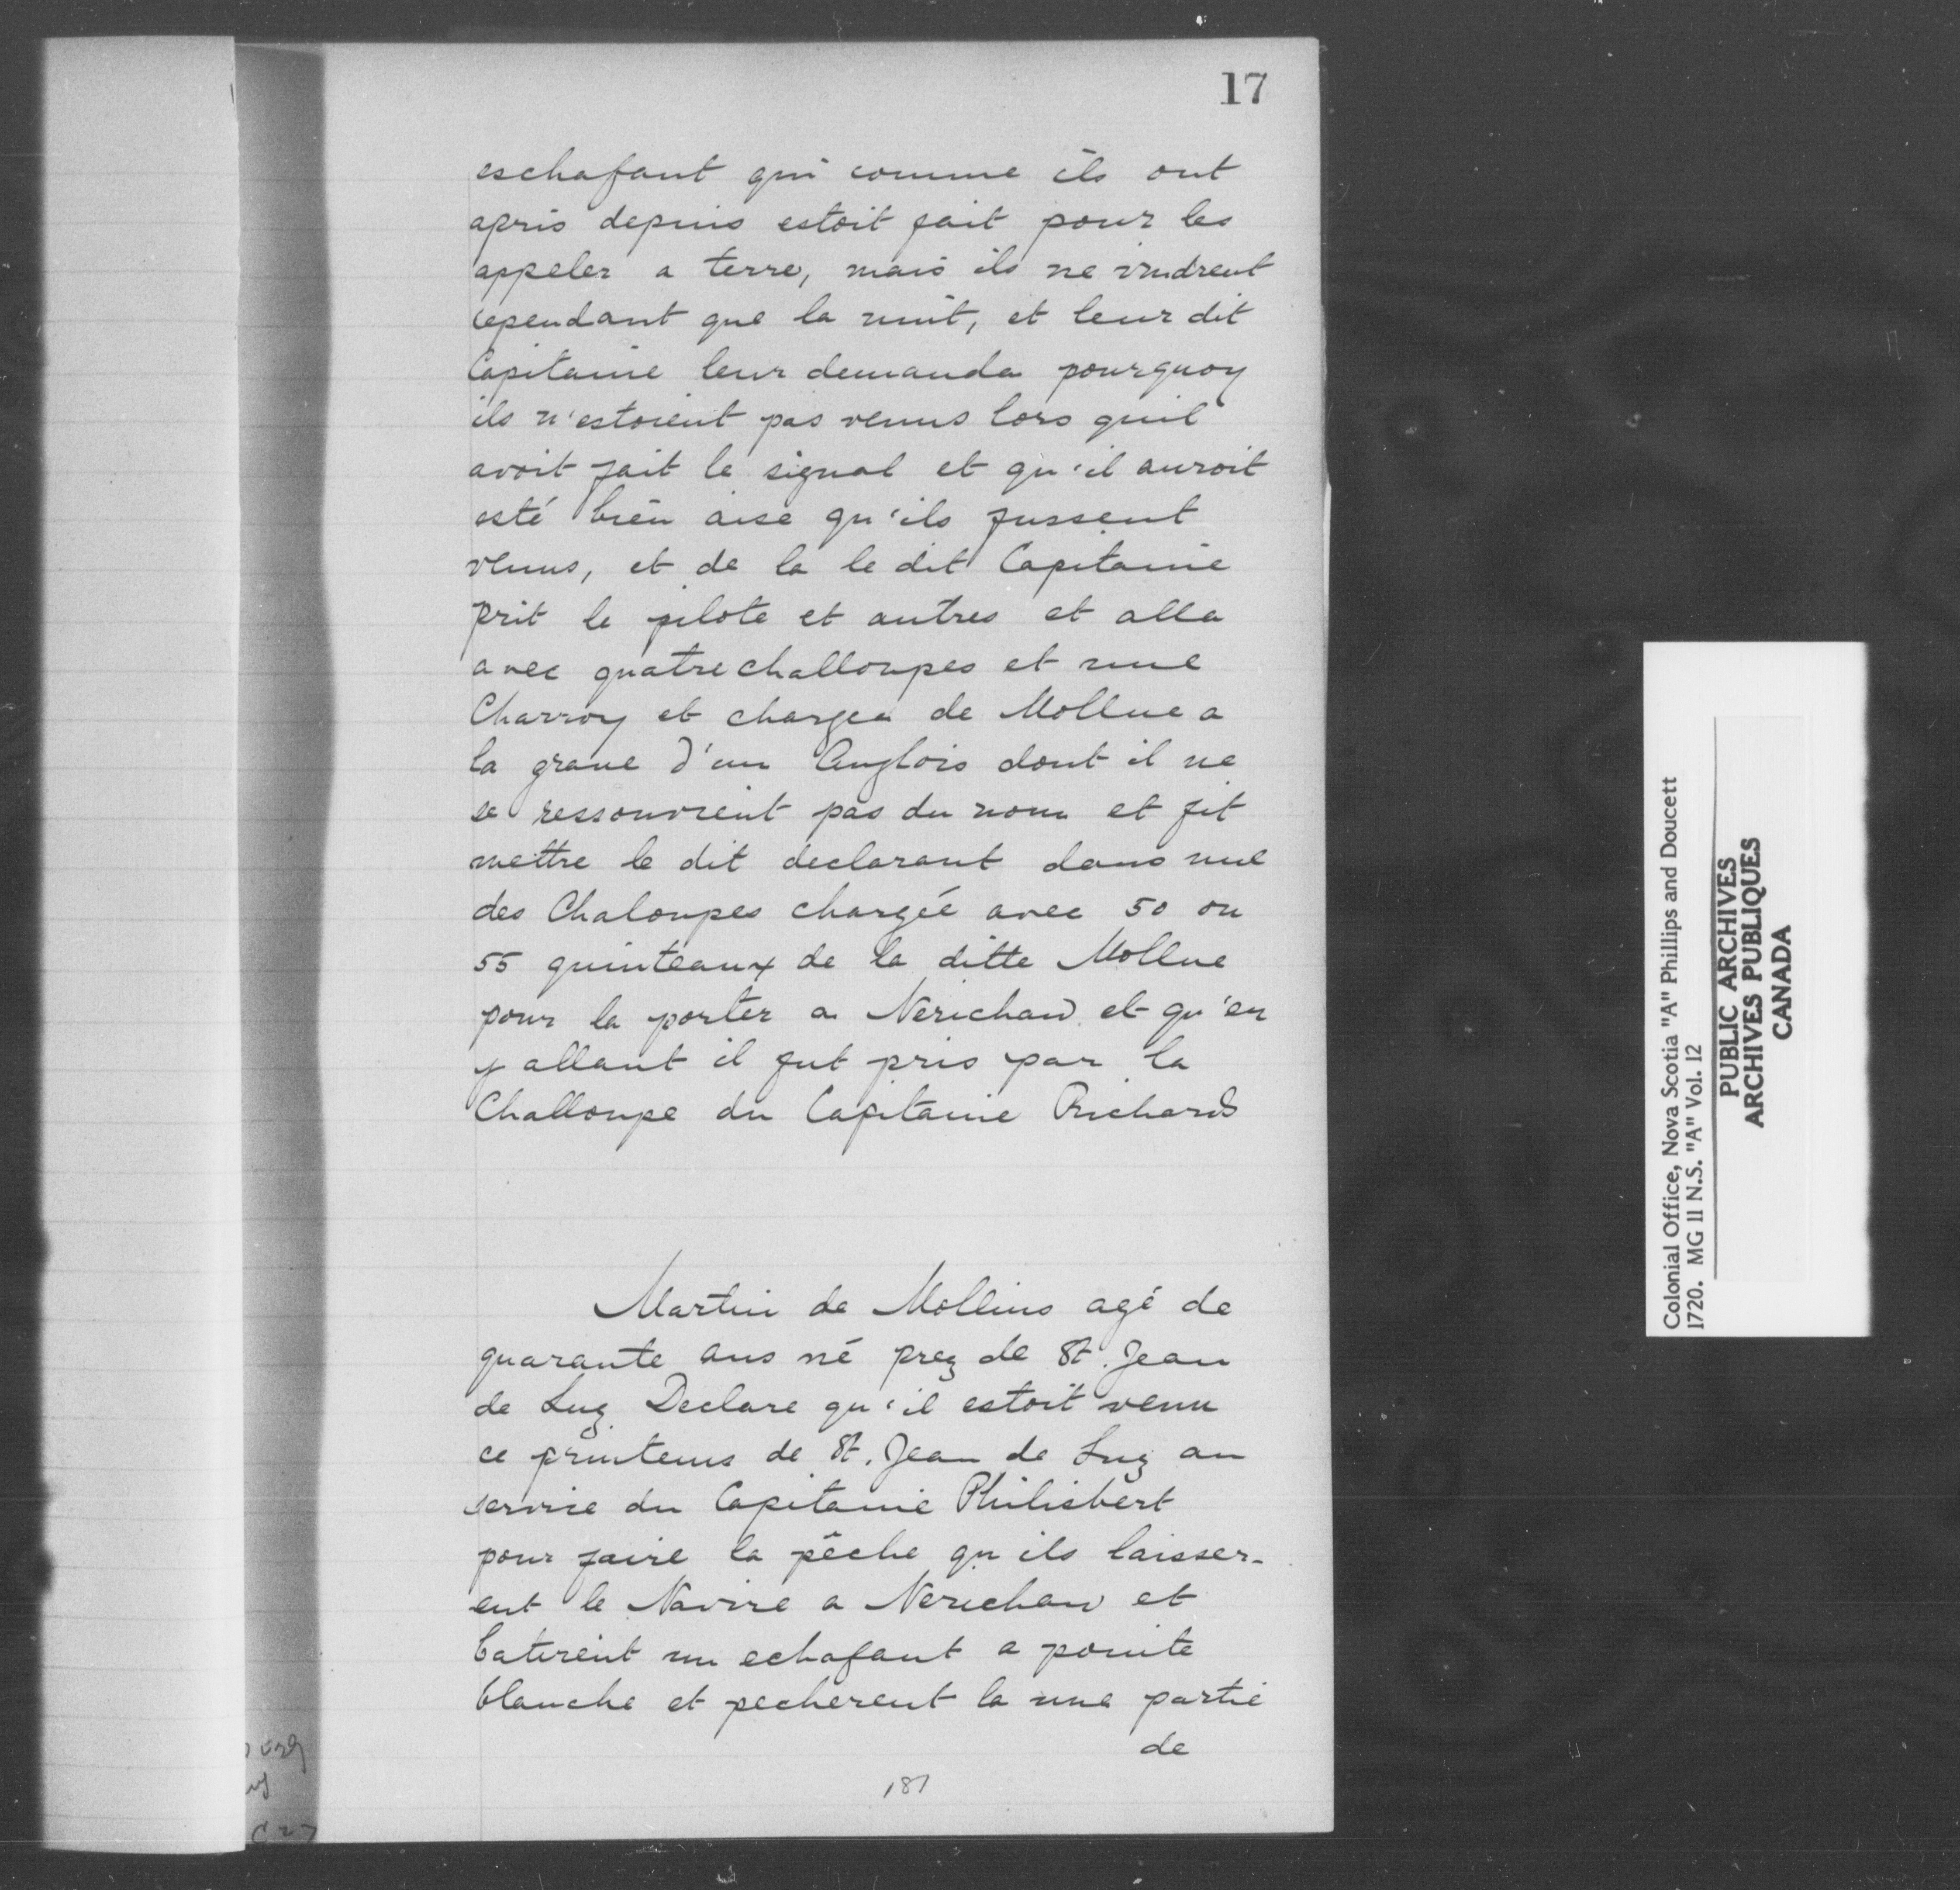 17
eschafant qui comme ils ont
apris depuis estoit fait pour les
appeler a terre, mais ils ne vindrent
cependant que la nuit, et leur dit
Capitaine leur demanda pourquoy
ils n'estoient pas venus lors quil
avoit fait le signal et qu'il auroit
esté bien aise qu'ils fussent
venus, et de la le dit Capitaine
prit le pilote et autres et alla
avec quatre challoupes et une
Charroy et chargea de Mollue a
la grave d'un Anglois dont il ne
se ressouvient pas du nom et fit
mettre le dit declarant dans une
des Chaloupes chargée avec 50 ou
55 quinteaux de la ditte Mollue
pour la porter a Nerichaw et qu'en
y allant il fut pris par la
Challoupe du Capitaine Richards
Martin de Mollins agé de
quarante ans né prez de St. Jean
de Luz Declare qu'il estoit venu
ce printems de St. Jean de Luz au
service du Capitaine Philisbert
pour faire la pêche qu ils laisser-
ent le Navire a Nerichaw et
batirent un echafant a pointe
blanche et pecherent la une partie
de
181
Colonial Office, Nova Scotia "A" Phillips and Doucett
1720. MG 11 N.S. "A" Vol. 12
PUBLIC ARCHIVES
ARCHIVES PUBLIQUES
CANADA